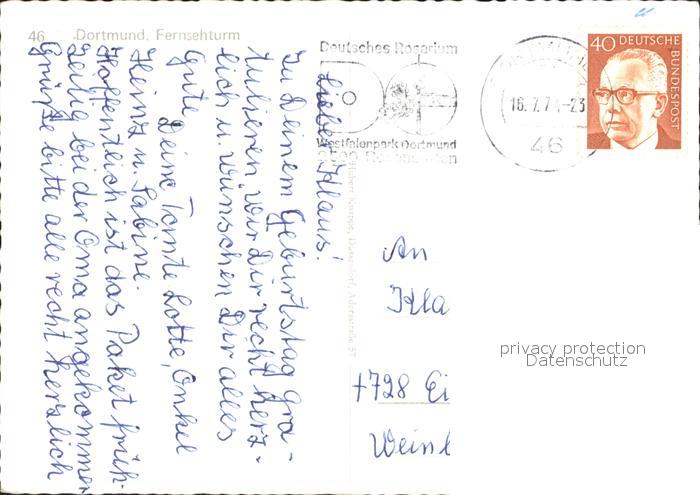 46 Dortmund. Fernsehturm
Deutsches Rosarium
Westfalenpark Dortmund
16.7.7 -23
46
40 DEUTSCHE
BUNDESPOST
Lieber Klaus!
Zu Deinem Geburtstag gra-
tulieren wir Dir recht herz-
lich u. wünschen Dir alles
Gute
Deine Tante Lotte, Onkel
Heinz u. Sabine.
Hoffentlich ist das Paket früh-
zeitig bei der Oma angekommen
Grüße bitte alle recht herzlich
An
Kla
+728 Ei
Wein
privacy protection
Datenschutz